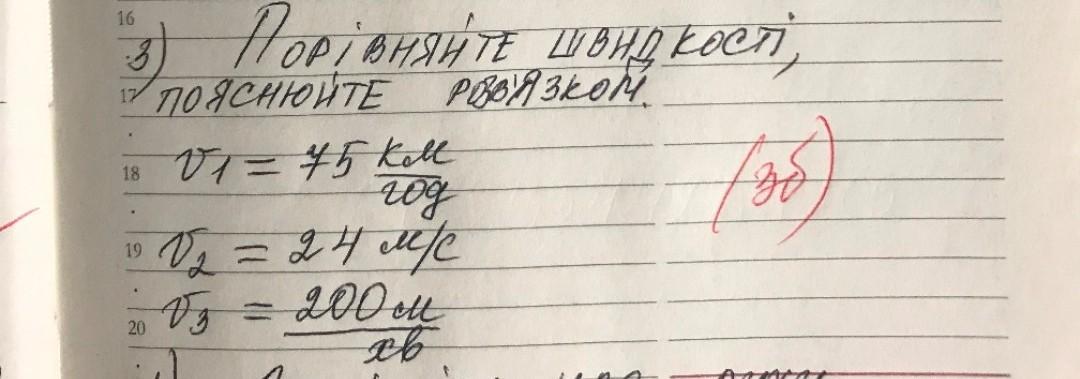 16
3) Порівняйте швидкості,
17 пояснюйте розв'язком.
18 v1 = 75 км/год
(3б)
19 v2 = 24 м/с
20 v3 = 200 м/хв